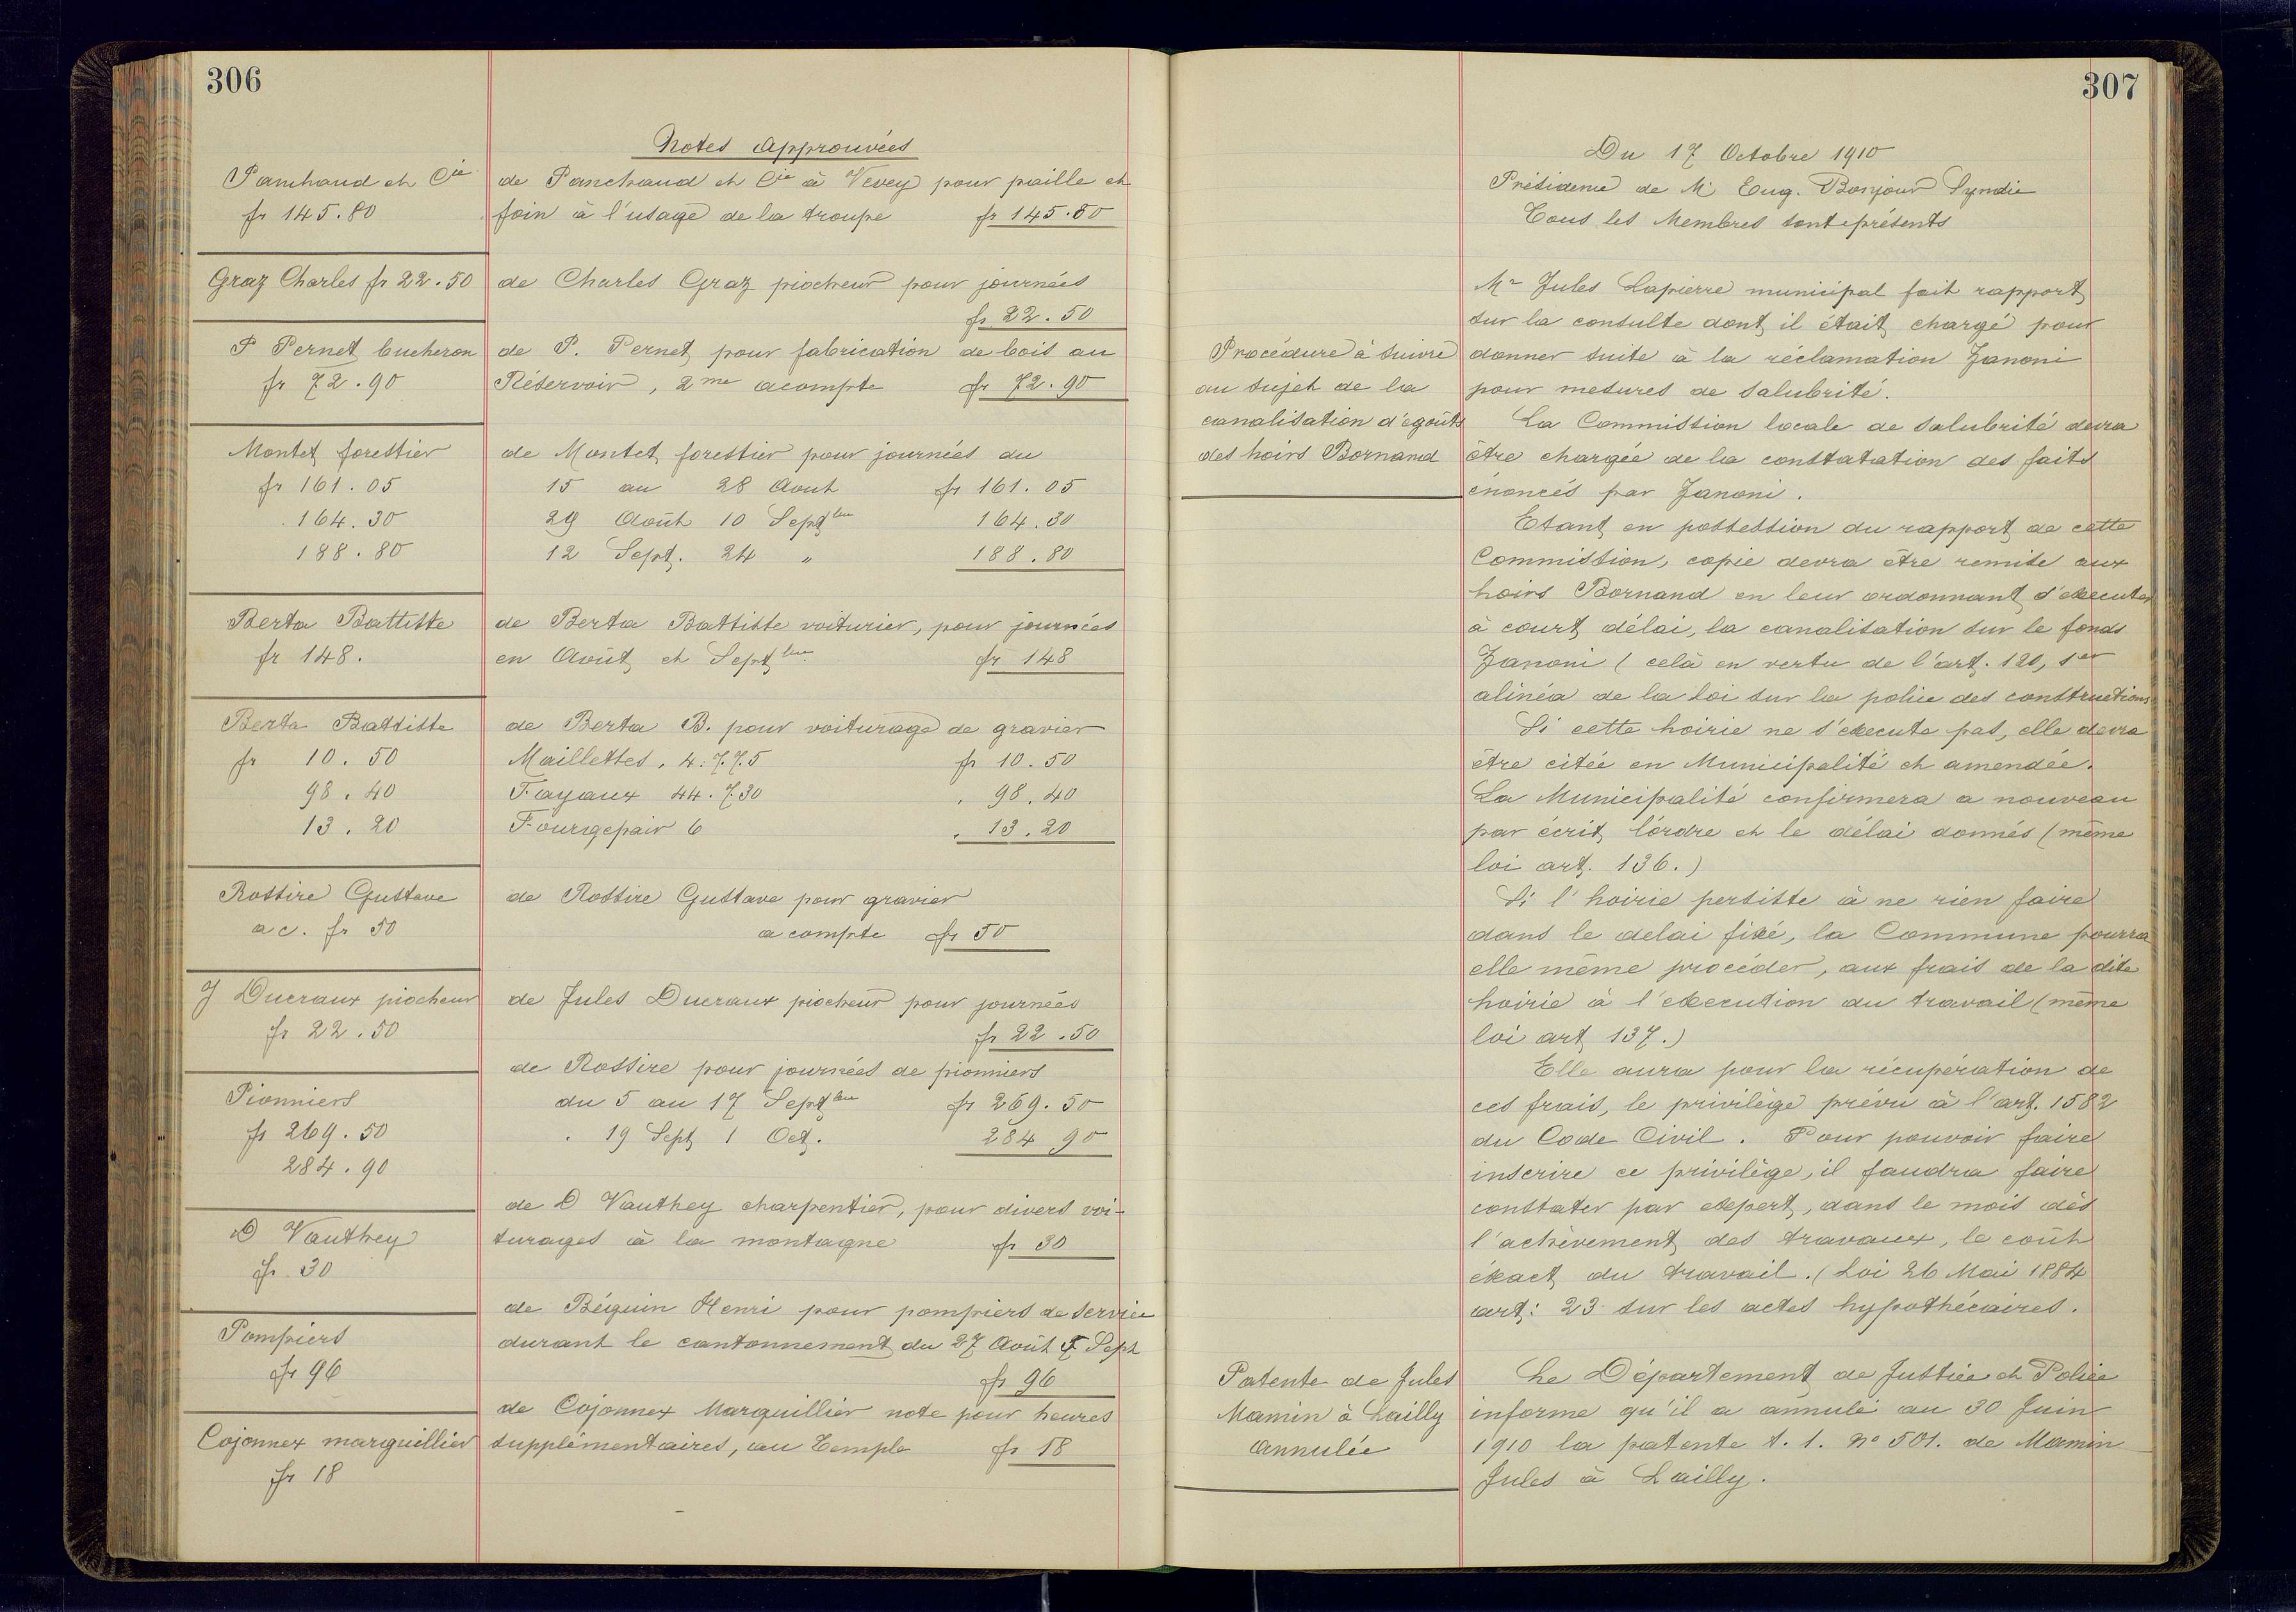 306
Notes Approuvées
Panchaud et Cie
fr 145.80
de Panchaud et Cie à Vevey pour paille et
foin à l'usage de la troupe fr 145.80
Graz Charles fr 22.50
de Charles Graz piocheur pour journées
fr 22.50
P Pernet bucheron
fr 72.90
de P. Pernet pour fabrication de bois au
Réservoir, 2me acompte fr 72.90
Montet forestier
fr 161.05
164.30
188.80
de Montet forestier pour journées du
15 au 28 Aout fr 161.05
29 Août 10 Septbre 164.30
12 Sept. 24 " 188.80
Berta Battiste
fr 148.
de Berta Battiste voiturier, pour journées
en Août et Septbre fr 148
Berta Battiste
fr 10.50
98.40
13.20
de Berta B. pour voiturage de gravier
Maillettes. 4.775 fr 10.50
Fayaux 44.730 . 98.40
Fourgepair 6 . 13.20
Rossire Gustave
ac. fr 50
de Rossire Gustave pour gravier
a compte fr 50
J Ducraux piocheur
fr 22.50
de Jules Ducraux piocheur pour journées
fr 22.50
Pionniers
fr 269.50
284.90
de Rossire pour journées de pionniers
du 5 au 17 Septbre fr 269.50
. 19 Sept 1 Oct. 284 90
D Vauthey
fr. 30
de D Vauthey charpentier, pour divers voi-
turages à la montagne fr 30
Pompiers
fr 96
de Béguin Henri pour pompiers de service
durant le cantonnement du 27 Août Sept
fr 96
Cojonnex marguillier
fr 18
de Cojonnex Marguillier note pour heures
supplémentaires, au Temple fr 18
307
Du 17 Octobre 1910
Présidence de Mr Eug. Bonjour Syndic
Tous les Membres sont présents
Mr Jules Lapierre municipal fait rapport
sur la consulte dont il était chargé pour
donner suite à la réclamation Zanoni
pour mesures de salubrité.
Procédure à suivre
au sujet de la
canalisation d'égoûts
des hoirs Bornand
La Commission locale de salubrité devra
être chargée de la constatation des faits
énoncés par Zanoni.
Etant en possession du rapport de cette
Commission, copie devra être remise aux
hoirs Bornand en leur ordonnant d'executer
à court délai, la canalisation sur le fonds
Zanoni ( celà en vertu de l'art. 120, 1er
alinéa de la loi sur la police des constructions
Si cette hoirie ne s'execute pas, elle devra
être citée en Municipalité et amendée.
La Municipalité confirmera a nouveau
par écrit l'ordre et le délai donnés (même
loi art. 136.)
Si l'hoirie persiste à ne rien faire
dans le delai fixé, la Commune pourra
elle même procéder, aux frais de la dite
hoirie à l'execution du travail (même
loi art 137.)
Elle aura pour la récupération de
ces frais, le privilège prévu à l'art. 1582
du Code Civil. Pour pouvoir faire
inscrire ce privilège, il faudra faire
constater par expert, dans le mois dès
l'achèvement des travaux, le coût
éxact du travail. (Loi 26 Mai 1884
art: 23 sur les actes hypothécaires.
Patente de Jules
Mamin à Lailly
Annulée
Le Département de Justice et Police
informe qu'il a annulé au 30 Juin
1910 la patente t. 1. No 501. de Mamin
Jules à Lailly.